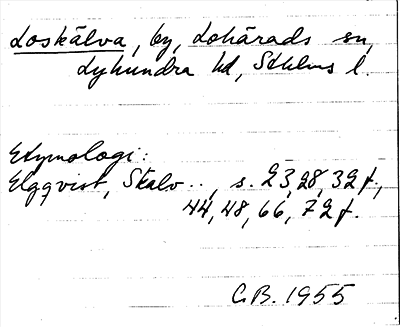 Loskälva, by, Lohärads sn,
Lyhundra hd, Sthlms l.
Etymologi:
Elgqvist, Skälv.., s. 23, 28, 32 f.,
44, 48, 66, 72 f.
C.B. 1955